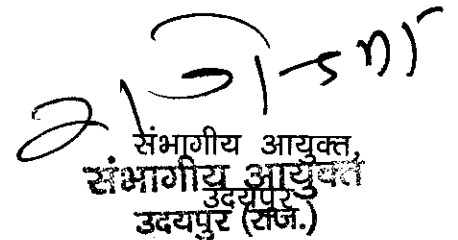 संभागीय आयुक्त,
संभागीय आयुक्त
उदयपुर
उदयपुर (राज.)